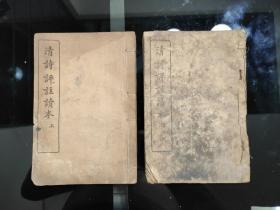 清詩評註讀本 上
清詩評註讀本